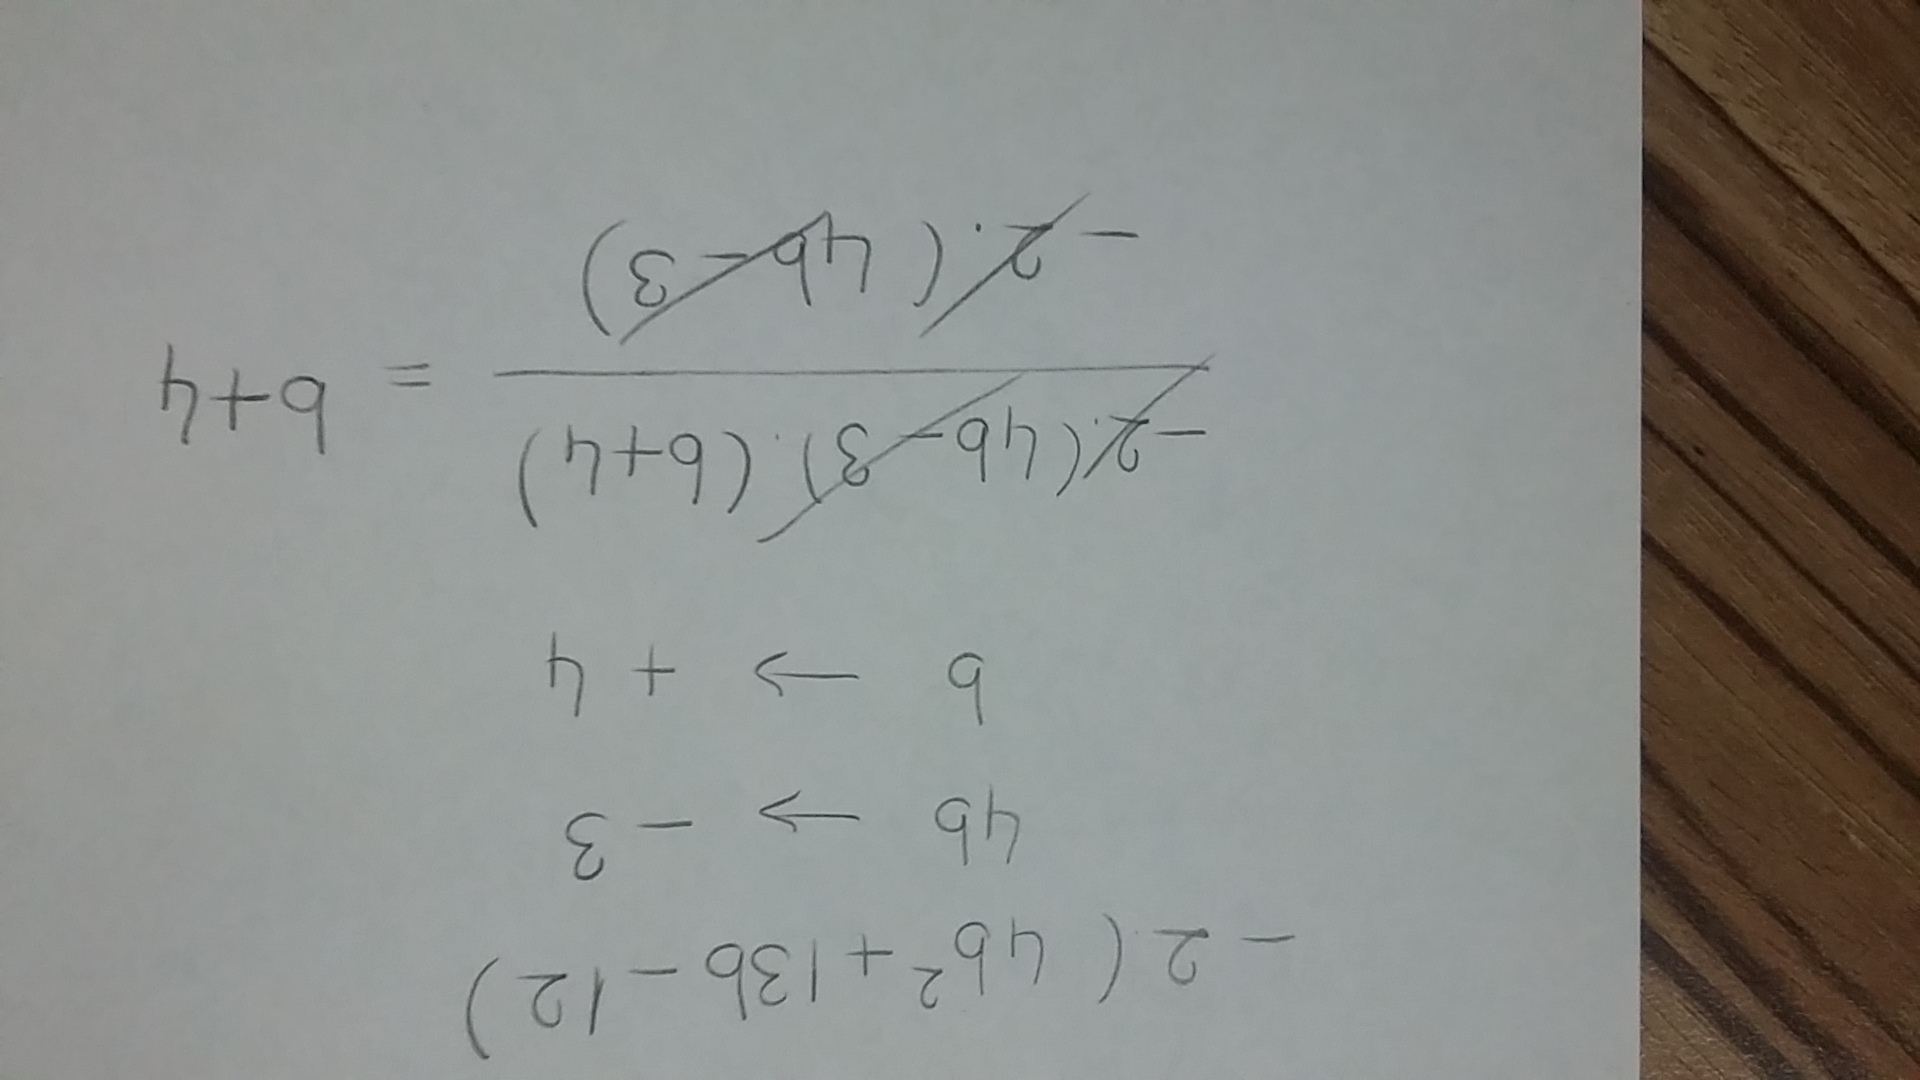 -2(4b²+13b-12)
4b → -3
b → +4
-2.(4b-3).(b+4)
= b+4
-2.(4b-3)